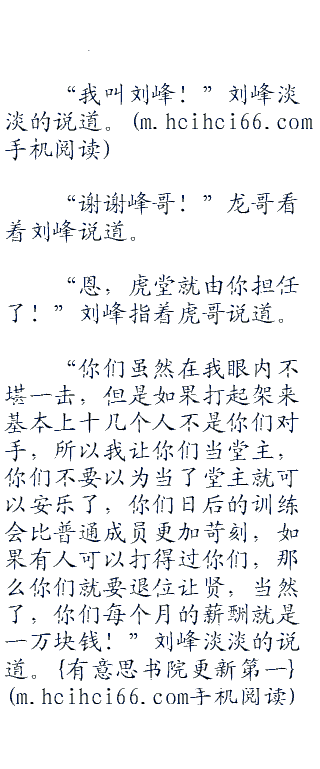 “我叫刘峰！”刘峰淡
淡的说道。(m.hcihci66.com
手机阅读)
“谢谢峰哥！”龙哥看
着刘峰说道。
“恩，虎堂就由你担任
了！”刘峰指着虎哥说道。
“你们虽然在我眼内不
堪一击，但是如果打起架来
基本上十几个人不是你们对
手，所以我让你们当堂主，
你们不要以为当了堂主就可
以安乐了，你们日后的训练
会比普通成员更加苛刻，如
果有人可以打得过你们，那
么你们就要退位让贤，当然
了，你们每个月的薪酬就是
一万块钱！”刘峰淡淡的说
道。{有意思书院更新第一}
(m.hcihci66.com手机阅读)